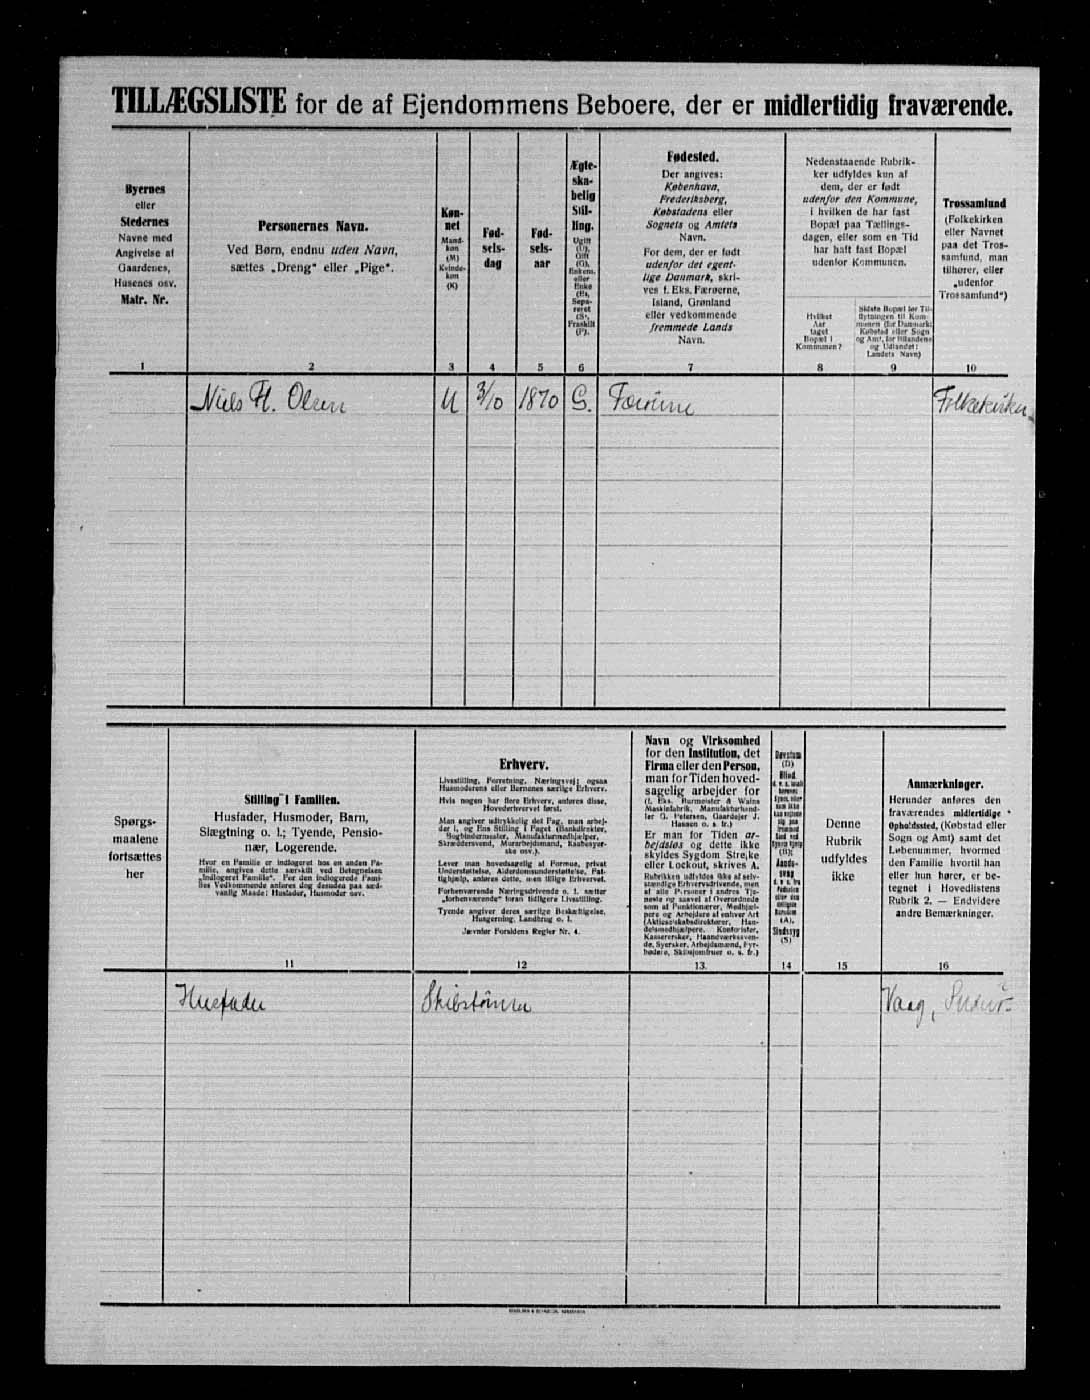 TILLÆGSLISTE for de af Ejendommens Beboere, der er midlertidig fraværende.
Byernes
eller
Stedernes
Navne med
Angivelse af
Gaardenes,
Husenes osv.
Matr. Nr.
Personernes Navn.
Ved Børn, endnu uden Navn,
sættes „Dreng“ eller „Pige“.
Køn-
net
Mand-
køn
(M)
Kvinde-
køn
(K)
Fød-
sels-
dag
Fød-
sels-
aar
Ægte-
ska-
belig
Stil-
ling.
Ugift
(U),
Gift
(G),
Enkem.
eller
Enke
(E),
Sepa-
reret
(S),
Fraskilt
(F).
Fødested.
Der angives:
København,
Frederiksberg,
Købstadens eller
Sognets og Amtets
Navn.
For dem, der er født
udenfor det egent-
lige Danmark, skri-
ves f. Eks. Færøerne,
Island, Grønland
eller vedkommende
fremmede Lands
Navn.
Nedenstaaende Rubrik-
ker udfyldes kun af
dem, der er født
udenfor den Kommune,
i hvilken de har fast
Bopæl paa Tællings-
dagen, eller som en Tid
har haft fast Bopæl
udenfor Kommunen.
Hvilket
Aar
taget
Bopæl i
Kommunen?
Sidste Bopæl før Til-
flytningen til Kom-
munen (for Danmark:
Købstad eller Sogn
og Amt, for Bilandene
og Udlandet:
Landets Navn)
Trossamfund
(Folkekirken
eller Navnet
paa det Tros-
samfund, man
tilhører, eller
„udenfor
Trossamfund“)
1 2 3 4 5 6 7 8 9 10
Niels H. Olsen M 3/10 1870 G. Færøerne Folkekirken
Spørgs-
maalene
fortsættes
her
Stilling i Familien.
Husfader, Husmoder, Barn,
Slægtning o. l.; Tyende, Pensio-
nær, Logerende.
Hvor en Familie er indlogeret hos en anden Fa-
milie, angives dette særskilt ved Betegnelsen
„Indlogeret Familie“. For den indlogerede Fami-
lies Vedkommende anføres dog desuden paa sæd-
vanlig Maade: Husfader, Husmoder osv.
Erhverv.
Livsstilling, Forretning, Næringsvej; ogsaa
Husmoderens eller Børnenes særlige Erhverv.
Hvis nogen har flere Erhverv, anføres disse,
Hovederhvervet først.
Man angiver udtrykkelig det Fag, man arbej-
der i, og Ens Stilling i Faget (Bankdirektør,
Bogbindermester, Manufakturmedhjælper,
Skræddersvend, Murarbejdsmand, Kaabesyer-
ske osv.).
Lever man hovedsagelig af Formue, privat
Understøttelse, Alderdomsunderstøttelse, Fat-
tighjælp, anføres dette, men tillige Erhvervet.
Forhenværende Næringsdrivende o. l. sætter
„forhenværende“ foran tidligere Livsstilling.
Tyende angiver deres særlige Beskæftigelse,
Husgerning, Landbrug o. l.
Jævnfør Forsidens Regler Nr. 4.
Navn og Virksomhed
for den Institution, det
Firma eller den Person,
man for Tiden hoved-
sagelig arbejder for
(f. Eks. Burmeister & Wains
Maskinfabrik, Manufakturhand-
ler G. Petersen, Gaardejer J.
Hansen o. s. fr.)
Er man for Tiden ar-
bejdsløs og dette ikke
skyldes Sygdom Strejke
eller Lockout, skrives A.
Rubrikken udfyldes ikke af selv-
stændige Erhvervsdrivende, men
af alle Personer i andres Tje-
neste og saavel af Overordnede
som af Funktionærer, Medhjæl-
pere og Arbejdere af enhver Art
(Aktieselskabsdirektører, Han-
delsmedhjælpere, Kontorister,
Kassererske, Haandværkssven-
de, Syersker, Arbejdsmænd, Fyr-
bødere, Skibsjomfruer o. s. fr.)
Døvstum
(D)
Blind,
(B);
Aands-
svag
(A),
Sindssyg
(S)
Denne
Rubrik
udfyldes
ikke
Anmærkninger.
Herunder anføres den
fraværendes midlertidige
Opholdssted, (Købstad eller
Sogn og Amt) samt det
Løbenummer, hvormed
den Familie hvortil han
eller hun hører, er be-
tegnet i Hovedlistens
Rubrik 2. — Endvidere
andre Bemærkninger.
11 12 13. 14 15 16
Husfader Skibstømrer Vaag,